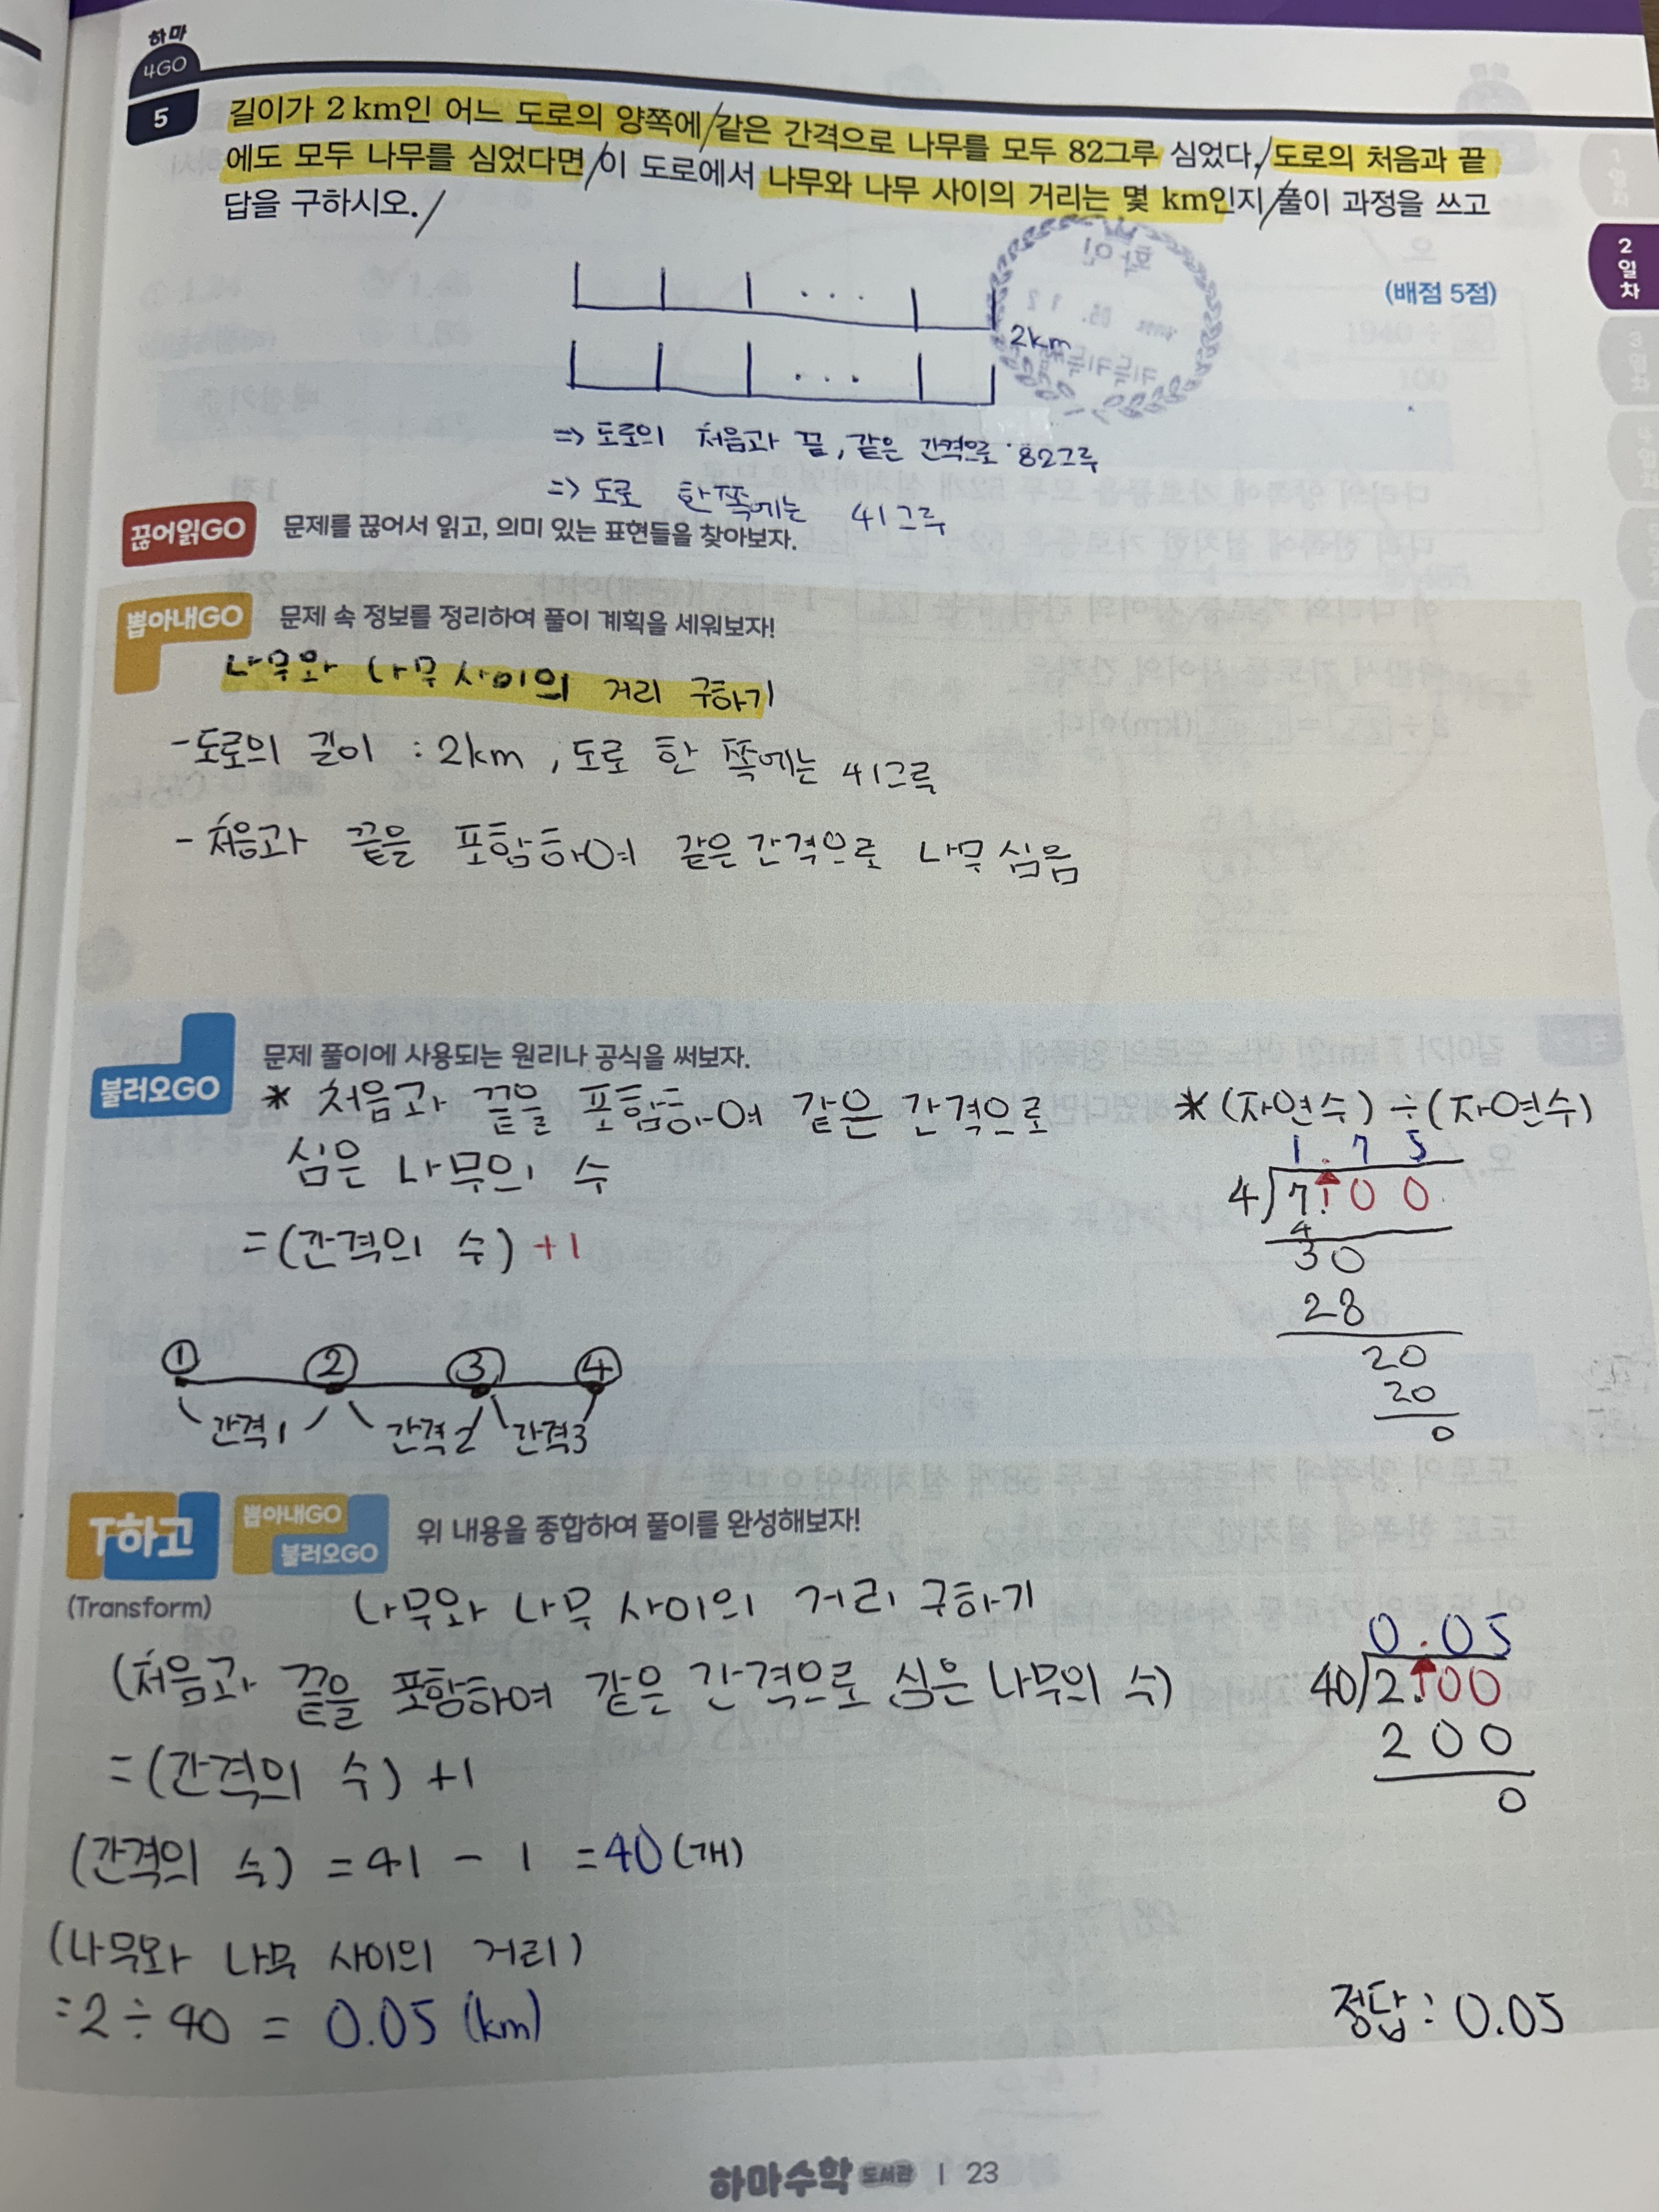 하마
4GO
5
길이가 2 km인 어느 도로의 양쪽에/같은 간격으로 나무를 모두 82그루 심었다./도로의 처음과 끝
에도 모두 나무를 심었다면/이 도로에서 나무와 나무 사이의 거리는 몇 km인지/풀이 과정을 쓰고
답을 구하시오./
(배점 5점)
2일차
. . .
2km
. . .
=> 도로의 처음과 끝, 같은 간격으로 82그루
=> 도로 한쪽에는 41그루
끊어읽GO
문제를 끊어서 읽고, 의미 있는 표현들을 찾아보자.
뽑아내GO
문제 속 정보를 정리하여 풀이 계획을 세워보자!
나무와 나무 사이의 거리 구하기
- 도로의 길이 : 2km , 도로 한 쪽에는 41그루
- 처음과 끝을 포함하여 같은 간격으로 나무 심음
불러오GO
문제 풀이에 사용되는 원리나 공식을 써보자.
* 처음과 끝을 포함하여 같은 간격으로
심은 나무의 수
= (간격의 수) +1
① ② ③ ④
간격1 간격2 간격3
* (자연수) ÷ (자연수)
1.75
4)7.00
4
30
28
20
20
0
T하고
(Transform)
뽑아내GO
불러오GO
위 내용을 종합하여 풀이를 완성해보자!
나무와 나무 사이의 거리 구하기
(처음과 끝을 포함하여 같은 간격으로 심은 나무의 수)
= (간격의 수) +1
(간격의 수) = 41 - 1 = 40 (개)
(나무와 나무 사이의 거리)
= 2 ÷ 40 = 0.05 (km)
0.05
40)2.00
200
0
정답 : 0.05
하마수학 도서관 | 23